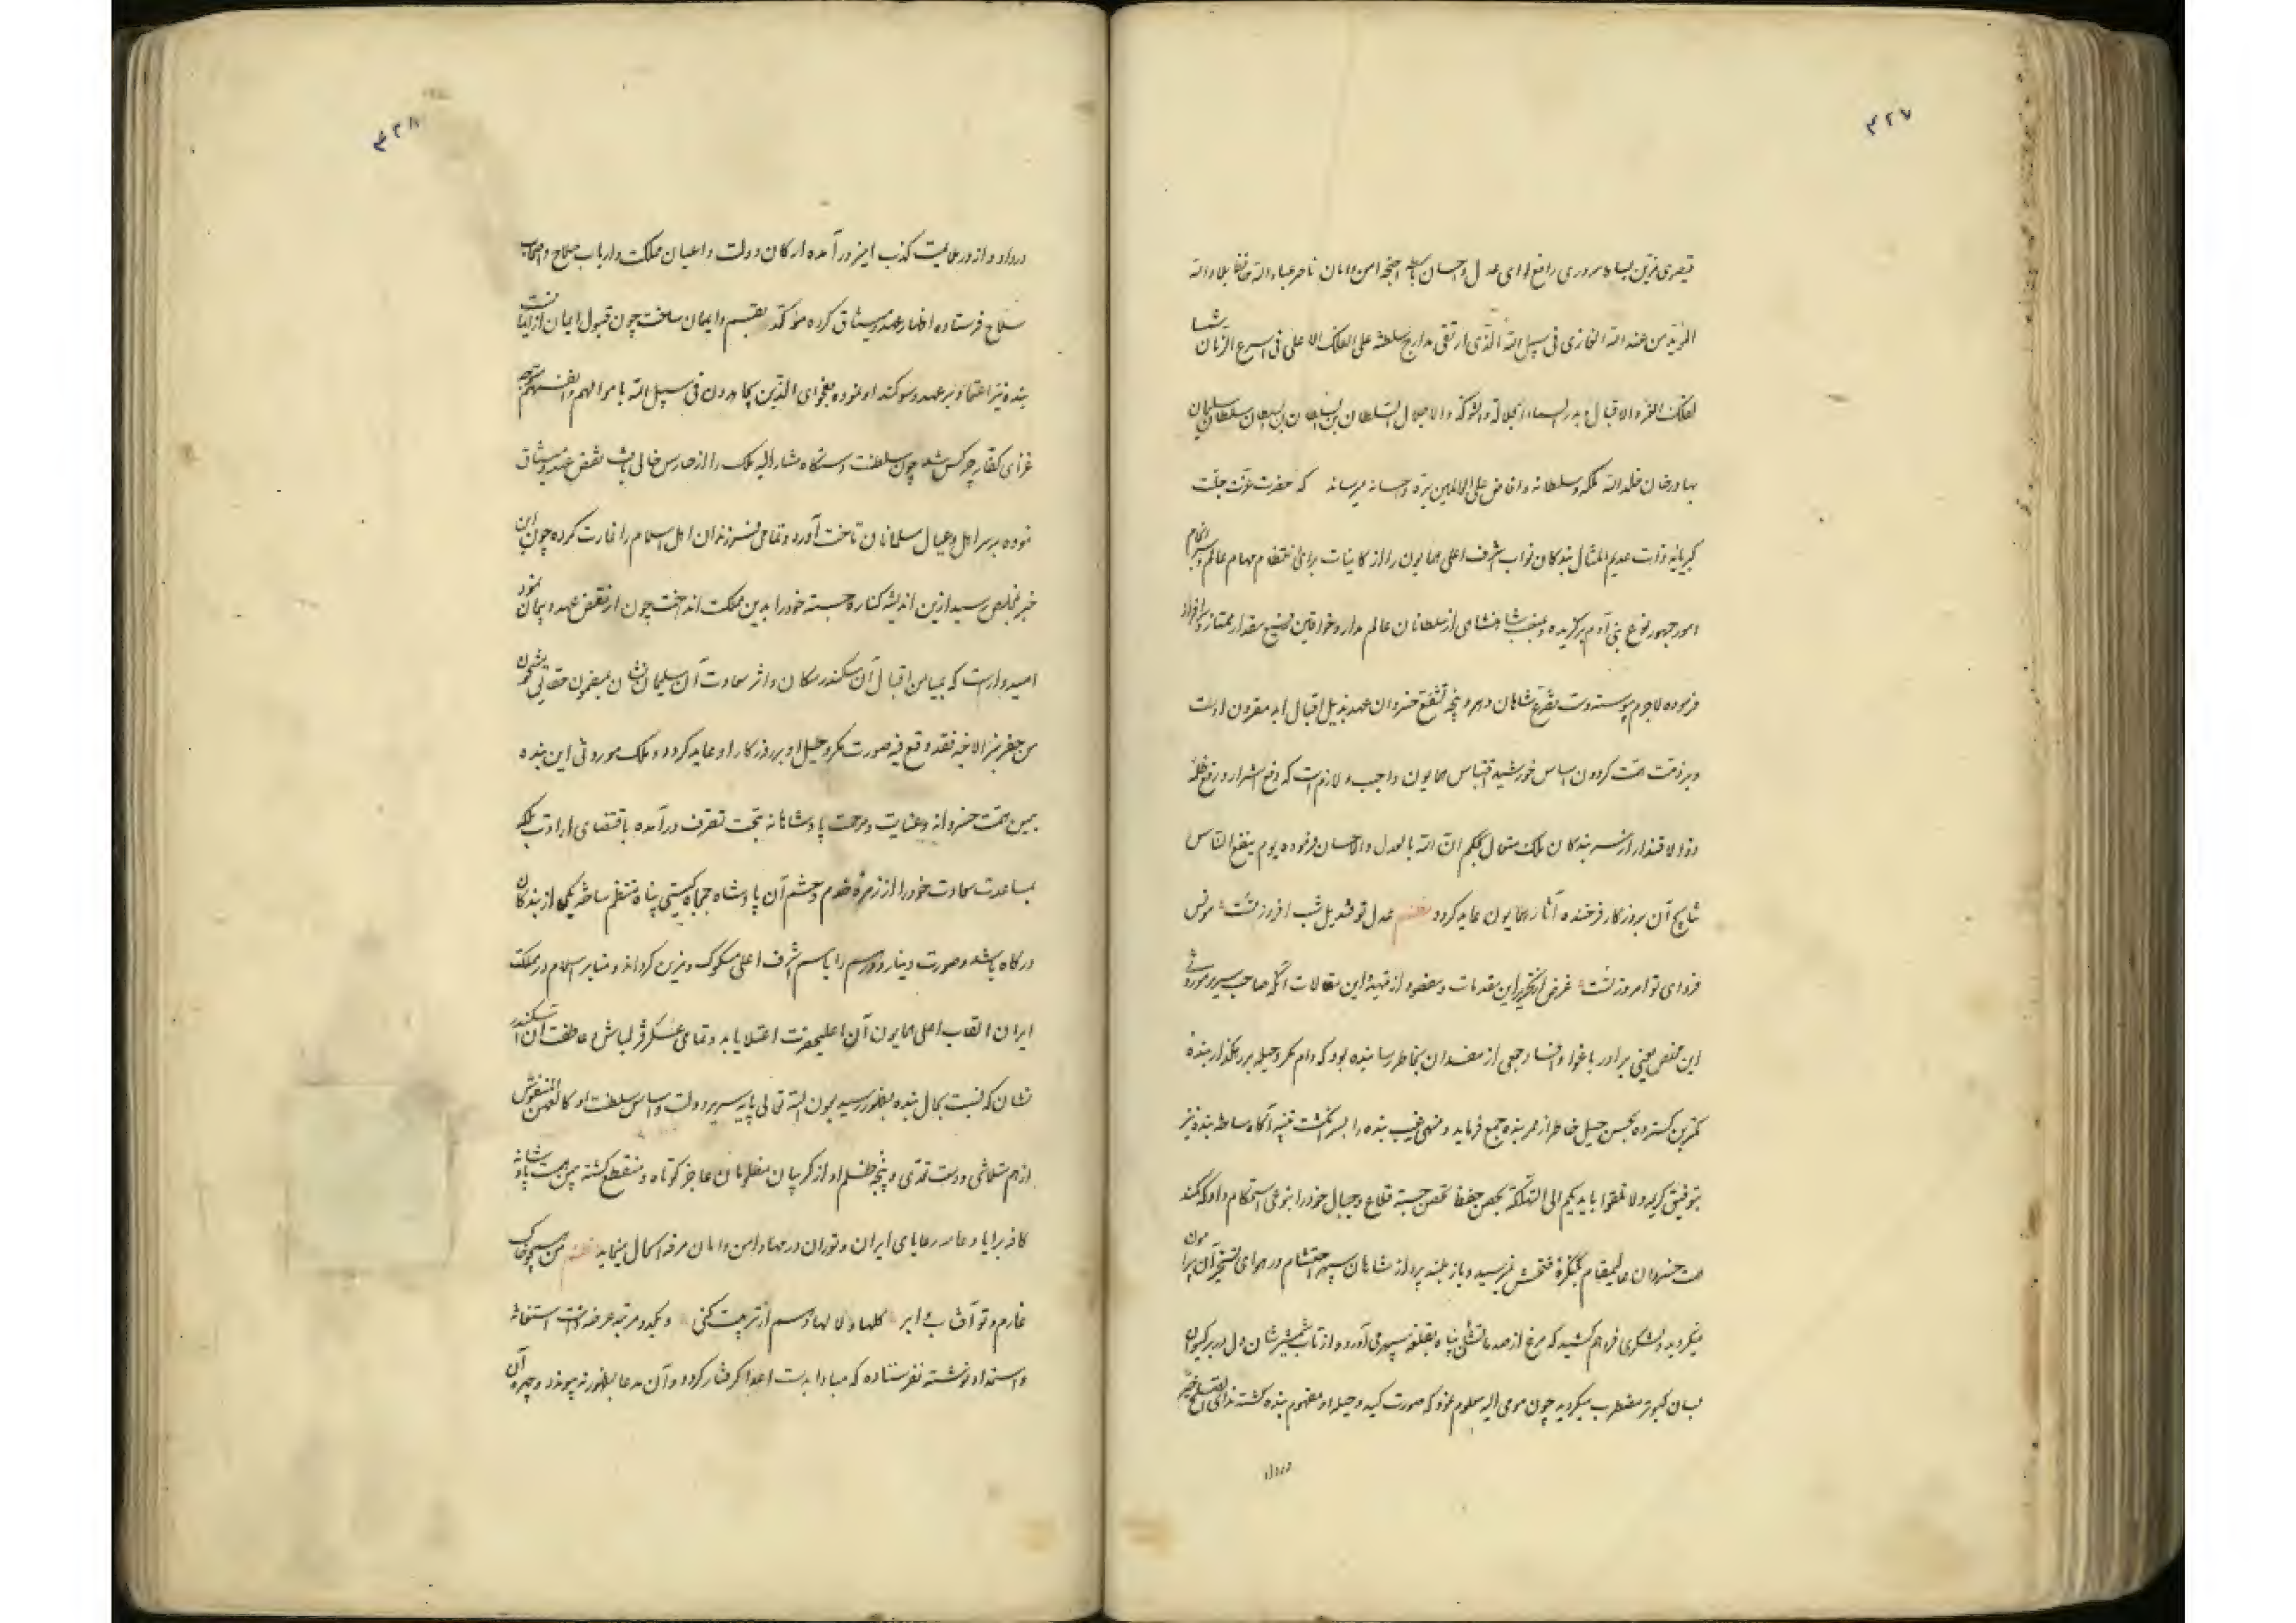 ۴۲۷
قیصری مزین بساط سروری رافع لوای عدل و احسان باسط اجنحه امن و امان ناصر عباد الله حافظ بلاد الله
المؤید من عند الله الغازی فی سبیل الله الذی ارتقی مدارج سلطنته علی الفلک الاعلی فی اسرع الزمان شها
لفلک العزه والاقبال و بدر السماء الجلاله والشوکه والاجلال السلطان بن السلطان بن السلطان سلطان سلیمان
بهادرخان خلد الله ملکه و سلطانه و افاض علی العالمین بره و احسانه میرساند که حضرت عزت جلت
کبریائه ذات عدیم المثال بندکان نواب اشرف اعلی همایون را از کاینات برای انتظام مهام عالم و سرانجام
امور جمهور نوع بنی آدم برکزیده و بمنصب شاهنشاهی از سلطانان عالم مدار و خواقین رفیع مقدار ممتاز و سرافراز
فرموده لاجرم پیوسته دست تضرع شاهان دهر و پنجه تشفع خسروان عهد بذیل اقبال ابد مقرون اوست
و بر ذمت همت کردون اساس خورشید اقتباس همایون واجب و لازم است که دفع اشرار و رفع ظلمه
ذوالاقتدار از سر بندکان ملک متعال بحکم ان الله بالعدل والاحسان فرموده یوم ینفع الناس
نتایج آن بروزکار فرخنده آثار همایون عاید کردد نظم عدل تو قندیل شب افروز تست مونس
فردای تو امروز تست غرض از تحریر این مقدمات و مقصود از تهیه این مقالات آنکه صاحب سریر موروثی
این مخلص یعنی برادر باغوا و افساد جمعی از مفسدان بخاطر رسانیده بود که دام مکر و حیله بر رهکذار بنده
کمترین کسترده بحسن حیل خاطر از ممر بنده جمع فرماید و منهی غیب بنده را بسر انکشت تنبیه آکاه ساخته بنده نیز
بتوفیق کریمه ولا تلقوا بایدیکم الی التهلکة بحصن حفظ تحصن جسته قلاع و جبال خود را بنوعی استحکام داد که کمند
همت خسروان عالیمقام بکنکره فتحش نمیرسید و باز بلند پرواز شاهان سپهر احتشام در هوای تسخیر آن پیرامون
نمیکردید و لشکری فراهم کشید که مرغ از صدماتش پناه بقلعه سپهر می آورد و از تاب شمشیرشان دل در بر کیوان
بسان کبوتر مضطرب میکردید چون مومی الیه معلوم نمود که صورت کید و حیله او مفهوم بنده کشته ندای الصلح خیر
در داد
۴۲۸
در داد و از در ملایمت کذب آمیز در آمده ارکان دولت و اعیان مملکت و ارباب صلاح و اصحاب
سلاح فرستاده اظهار عهد و میثاق کرده مؤکد بقسم و ایمان ساخت چون قبول ایمان از ایمانست
بنده نیز اعتماد بر عهد و سوکند او نموده بفحوای الذین یجاهدون فی سبیل الله باموالهم و انفسهم متوجه
غزای کفار چرکس شد چون سلطنت دستکاه مشارالیه ملک را از حارس خالی یافت نقض عهد و میثاق
نموده بر سر اهل و عیال مسلمانان تاخت آورد و تمامی فرزندان اهل اسلام را غارت کرده چون این
خبر بمخلص رسید ازین اندیشه کناره جسته خود را بدین مملکت انداخت چون او نقض عهد و پیمان نمود
امیدوار است که بمیامن اقبال آن سکندر مکان و اثر سعادت آن سلیمان نشان بمضمون حقانی مشحون
من حفر بئرا لاخیه فقد وقع فیه صورت مکر و حیل او بر روزکار او عاید کردد و ملک موروثی این بنده
بیمن همت خسروانه و عنایت و مرحمت پادشاهانه بتحت تصرف در آمده باقتضای ارادت بلکه
بمساعدت سعادت خود را از زمره خدم و حشم آن پادشاه جمجاه کیتی پناه منتظم ساخته یکی از بندکان
درکاه باشد و صورت دینار و درهم را باسم اشرف اعلی مسکوک و مزین کرداند و منابر اسلام در مملکت
ایران القاب اعلی همایون آن اعلیحضرت اعتلا یابد و تمامی عسکر قزلباش و عاطفت آن اسکندر
نشان که نسبت بحال بنده بظهور رسید بعون الله تعالی پایه سریر دولت و اساس سلطنت او کالعهن المنفوش
از هم متلاشی و دست تعدی و پنجه ظلم او از کریبان مظلومان عاجز کوتاه و منقطع کشته بیمن همت پادشاهانه
کافه برایا و عامه رعایای ایران و توران در مهاد امن و امان مرفه الحال مینماید نظم من همچو خاک
خارم و تو آفتاب و ابر کلها و لالها دهم ار تربیت کنی و یکدو مرتبه عرضه داشت استغاثه
و استمداد نوشته نفرستاده که مبادا بدست اعدا کرفتار کردد و آن مدعا بظهور نه پیوندد و چهره آن